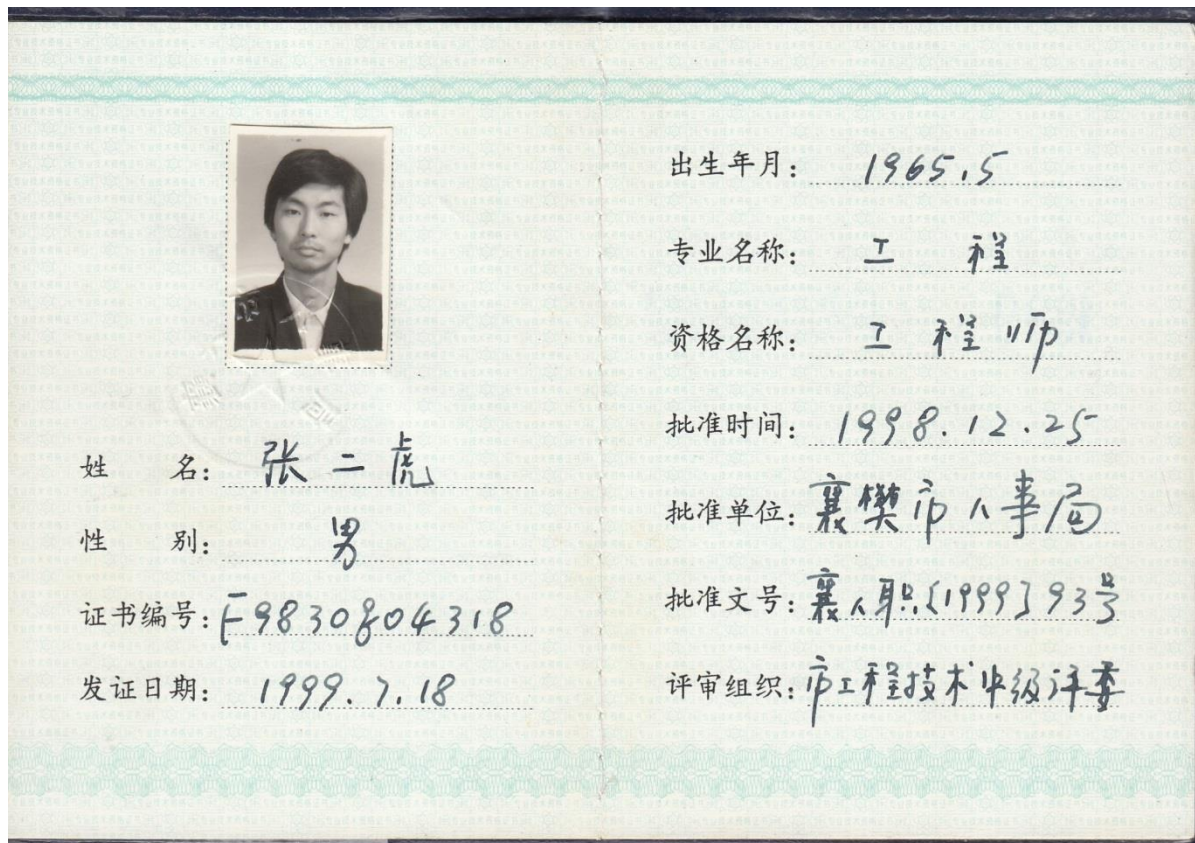 姓 名：张二虎
性 别：男
证书编号：F9830804318
发证日期：1999.7.18
出生年月：1965.5
专业名称：工 程
资格名称：工 程 师
批准时间：1998.12.25
批准单位：襄樊市人事局
批准文号：襄人职[1999]93号
评审组织：市工程技术中级评委